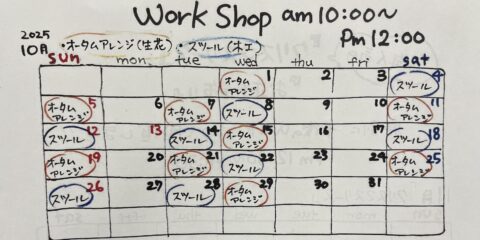 Work Shop am 10:00~
Pm 12:00
2025
10月 ・オータムアレンジ(生花) ・スツール(木工)
sun mon tue wed thu fri sat
オータムアレンジ 1 2 3 スツール 4
オータムアレンジ 5 6 オータムアレンジ 7 スツール 8 9 10 オータムアレンジ 11
スツール 12 13 スツール 14 オータムアレンジ 15 16 17 スツール 18
オータムアレンジ 19 20 オータムアレンジ 21 スツール 22 23 24 オータムアレンジ 25
スツール 26 27 スツール 28 オータムアレンジ 29 30 31